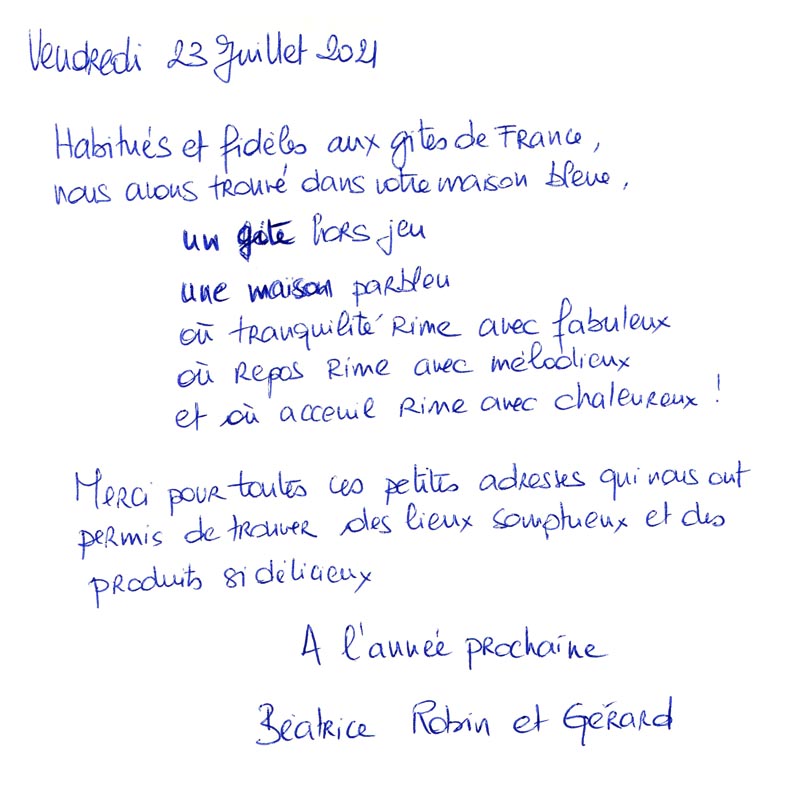 Vendredi 23 Juillet 2021
Habitués et fidèles aux gîtes de France,
nous avons trouvé dans votre maison bleue,
un gîte hors jeu
une maison parbleu
où tranquilité rime avec fabuleux
où repos rime avec mélodieux
et où acceuil rime avec chaleureux !
Merci pour toutes ces petites adresses qui nous ont
permis de trouver des lieux somptueux et des
produits si délicieux
A l'année prochaine
Béatrice Robin et Gérard